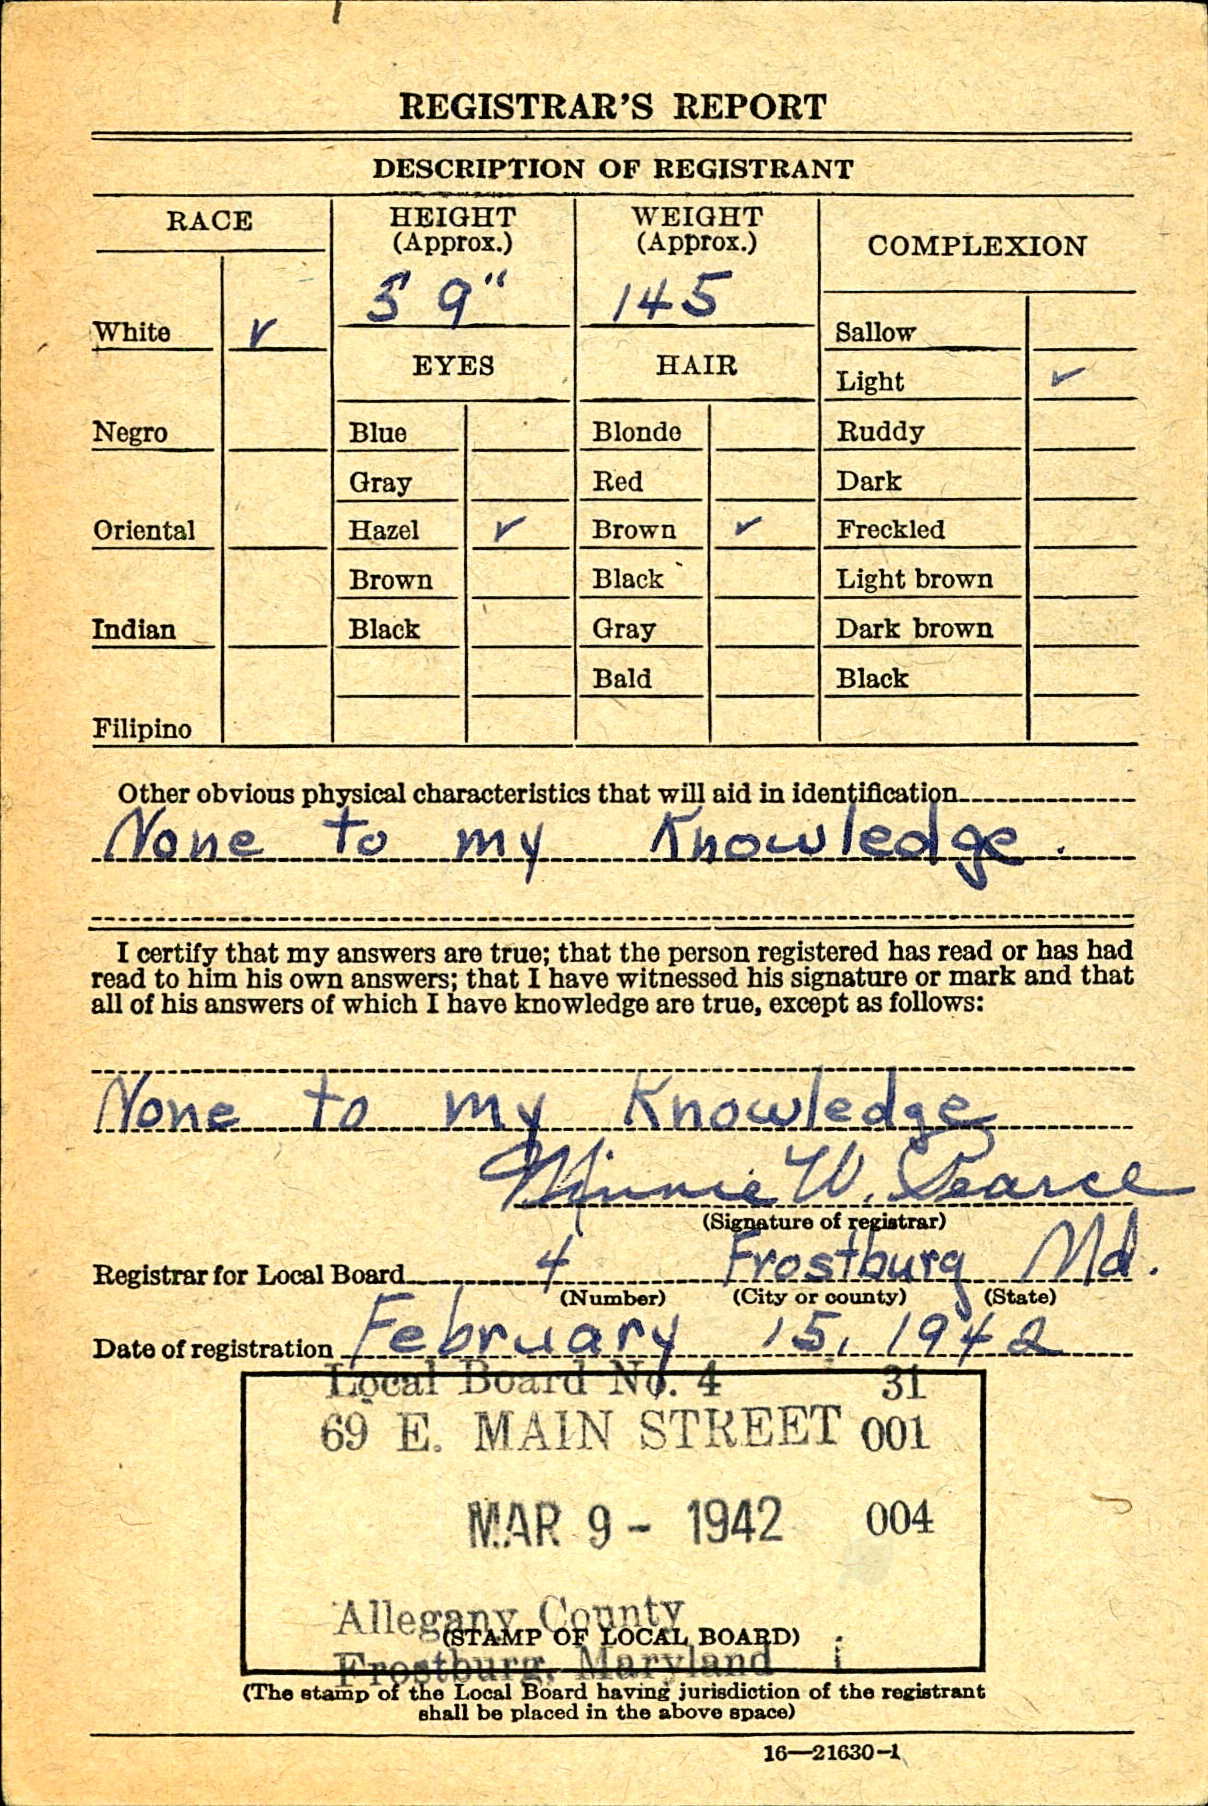 REGISTRAR'S REPORT
DESCRIPTION OF REGISTRANT
RACE
HEIGHT
(Approx.)
WEIGHT
(Approx.)
COMPLEXION
5' 9"
145
White ✓
Sallow
EYES
HAIR
Light ✓
Negro
Blue
Blonde
Ruddy
Gray
Red
Dark
Oriental
Hazel ✓
Brown ✓
Freckled
Brown
Black
Light brown
Indian
Black
Gray
Dark brown
Bald
Black
Filipino
Other obvious physical characteristics that will aid in identification
None to my Knowledge.
I certify that my answers are true; that the person registered has read or has had
read to him his own answers; that I have witnessed his signature or mark and that
all of his answers of which I have knowledge are true, except as follows:
None to my Knowledge
Minnie W. Pearce
(Signature of registrar)
Registrar for Local Board 4 Frostburg Md.
(Number) (City or county) (State)
Date of registration February 15, 1942
Local Board No. 4 31
69 E. MAIN STREET 001
MAR 9 - 1942 004
Allegany County
(STAMP OF LOCAL BOARD)
Frostburg, Maryland
(The stamp of the Local Board having jurisdiction of the registrant
shall be placed in the above space)
16—21630-1